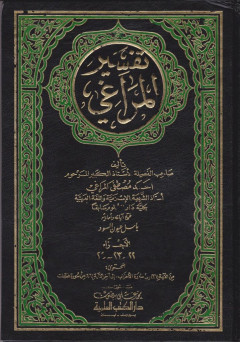 تفسير
المراغي
تأليف
صاحب الفضيلة الأستاذ الكبير المرحوم
أحمد مصطفى المراغي
أستاذ الشريعة الإسلامية واللغة العربية
بكلية دار العلوم سابقا
باسل عيون السود
الأجزاء
٢٢ - ٢٣ - ٢٤
دار الكتب العلمية